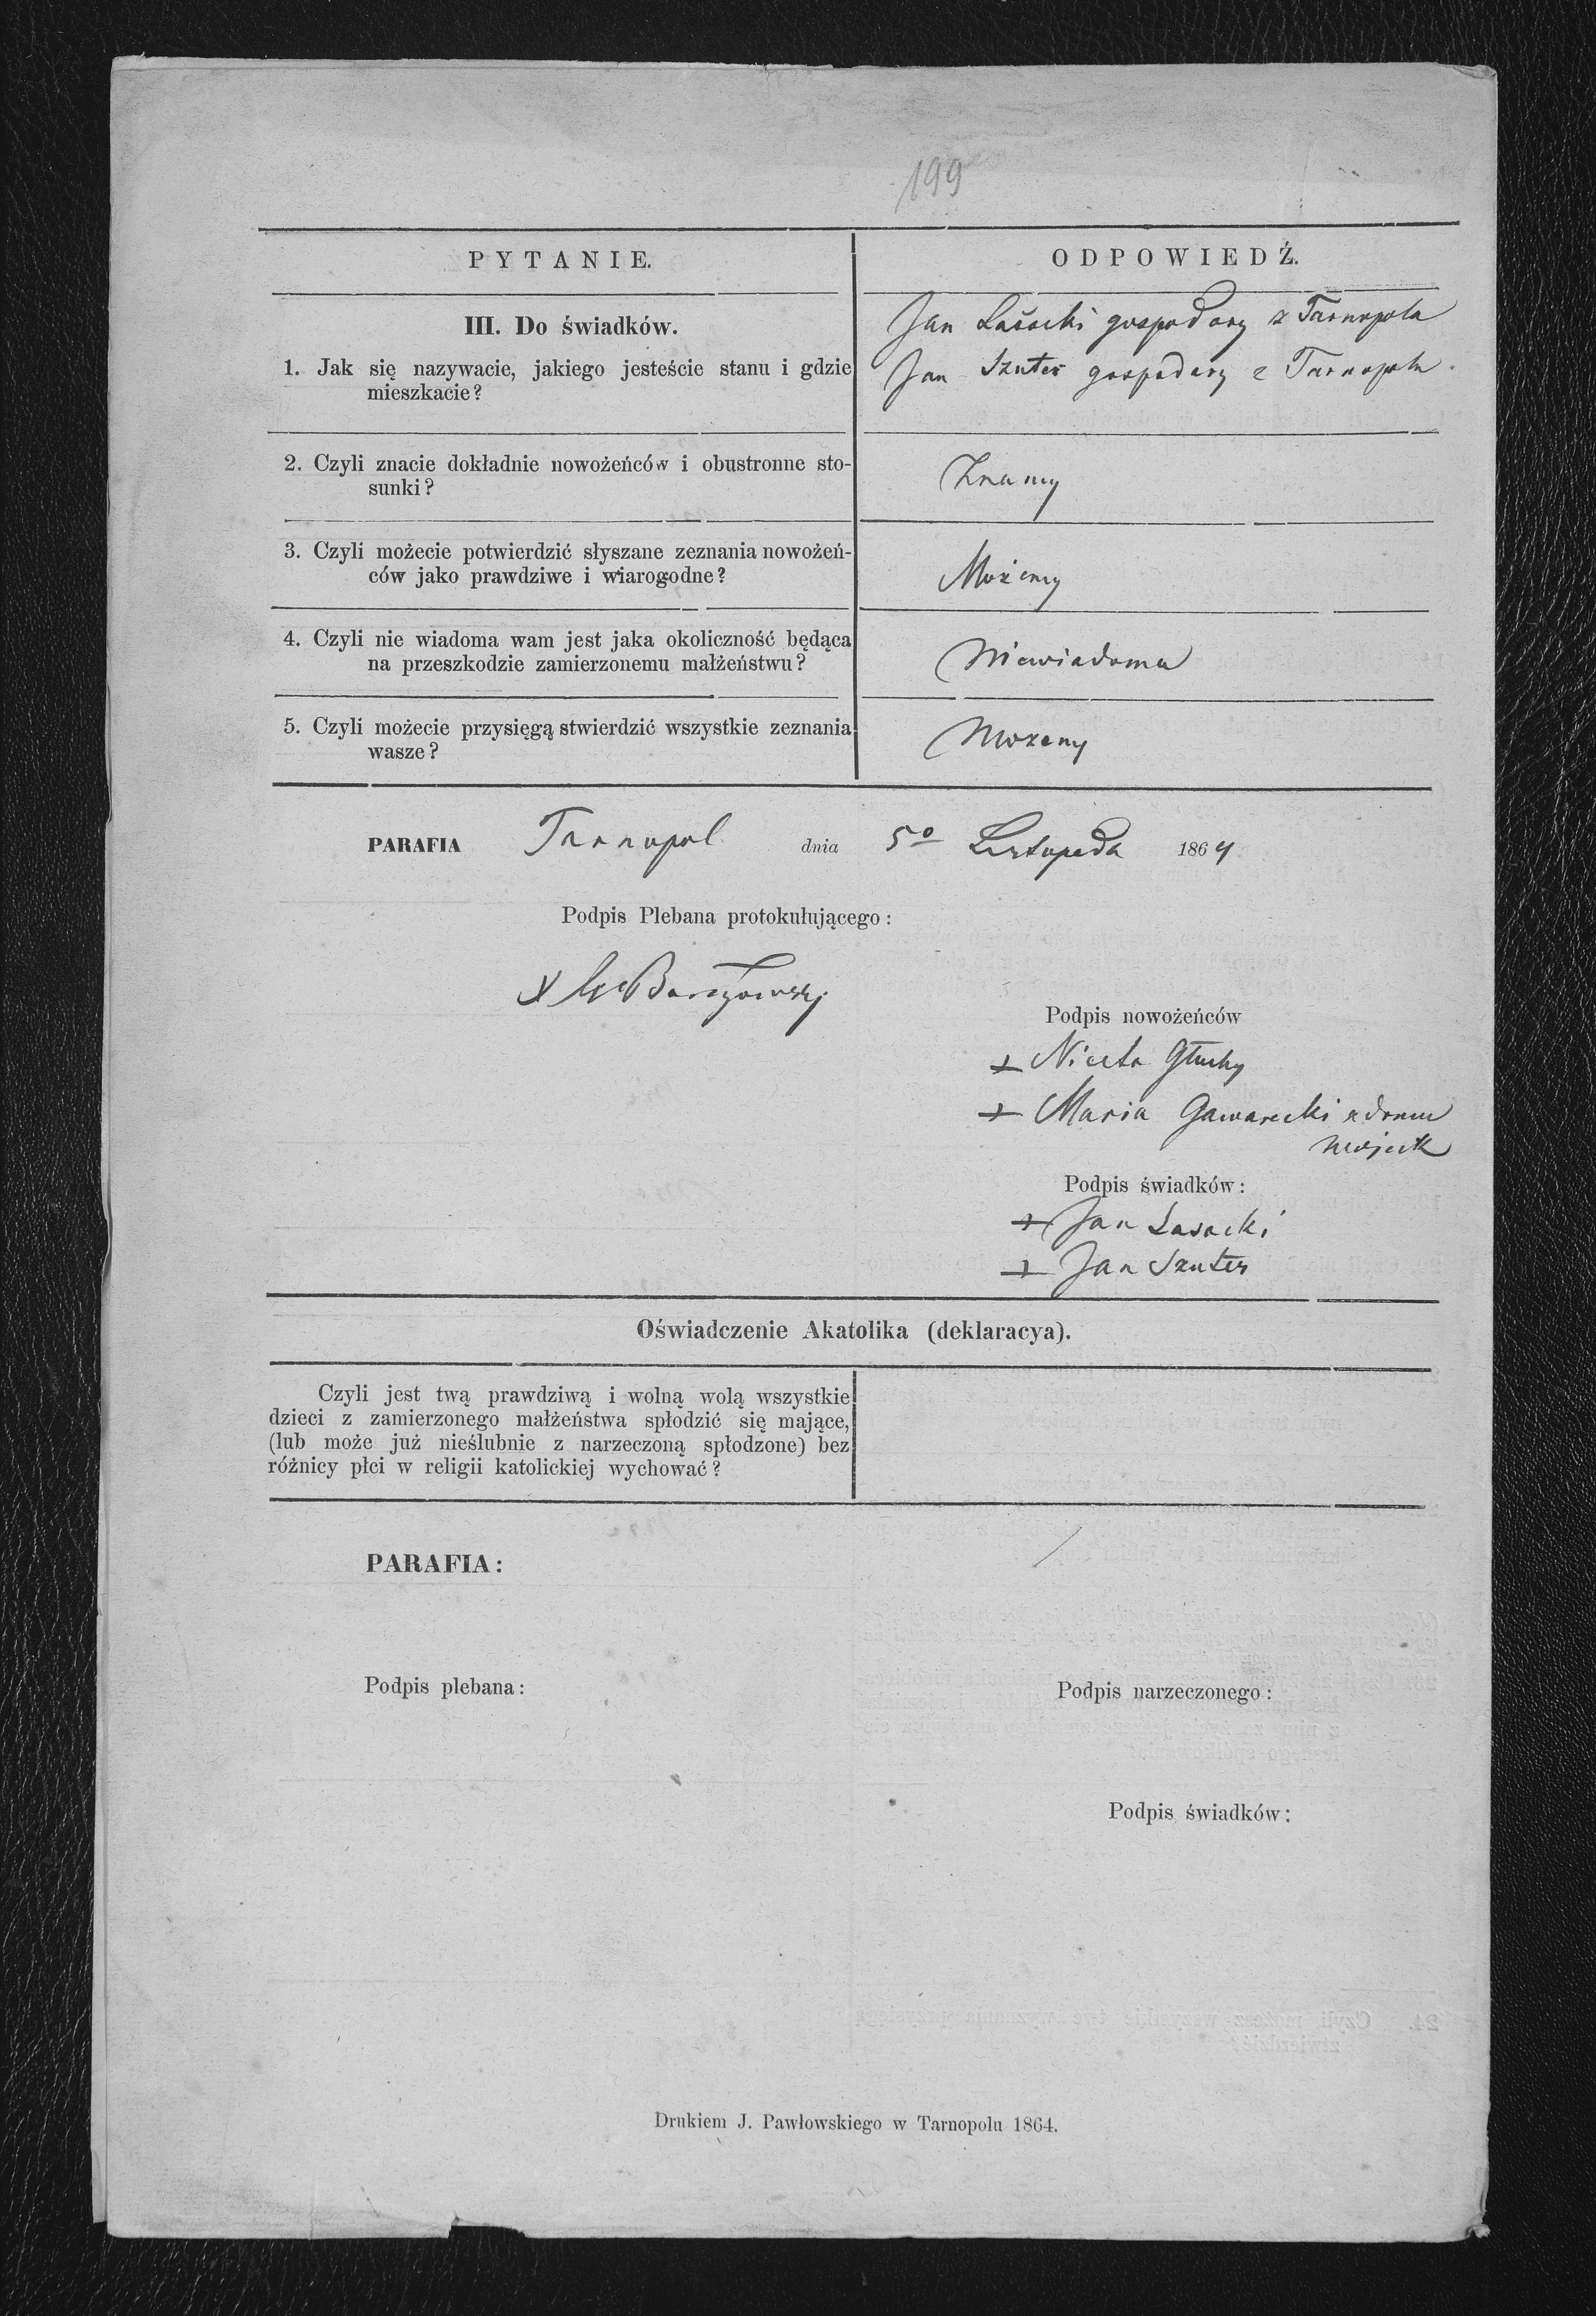 199
PYTANIE.
ODPOWIEDŹ.
III. Do świadków.
1. Jak się nazywacie, jakiego jesteście stanu i gdzie
mieszkacie?
Jan Lasocki gospodarz z Tarnopola
Jan Szuter gospodarz z Tarnopola.
2. Czyli znacie dokładnie nowożeńców i obustronne sto-
sunki?
Znamy
3. Czyli możecie potwierdzić słyszane zeznania nowożeń-
ców jako prawdziwe i wiarogodne?
Możemy
4. Czyli nie wiadoma wam jest jaka okoliczność będąca
na przeszkodzie zamierzonemu małżeństwu?
Niewiadoma
5. Czyli możecie przysięgą stwierdzić wszystkie zeznania
wasze?
Możemy
PARAFIA Tarnopol dnia 5º Listopada 1864
Podpis Plebana protokułującego:
X
Podpis nowożeńców
+ Niceta Głuchy
+ Maria Gawarecki z domu
Podpis świadków:
+ Jan Lasocki
+ Jan Szuter
Oświadczenie Akatolika (deklaracya).
Czyli jest twą prawdziwą i wolną wolą wszystkie
dzieci z zamierzonego małżeństwa spłodzić się mające,
(lub może już nieślubnie z narzeczoną spłodzone) bez
różnicy płci w religii katolickiej wychować?
PARAFIA:
Podpis plebana:
Podpis narzeczonego:
Podpis świadków:
Drukiem J. Pawłowskiego w Tarnopolu 1864.